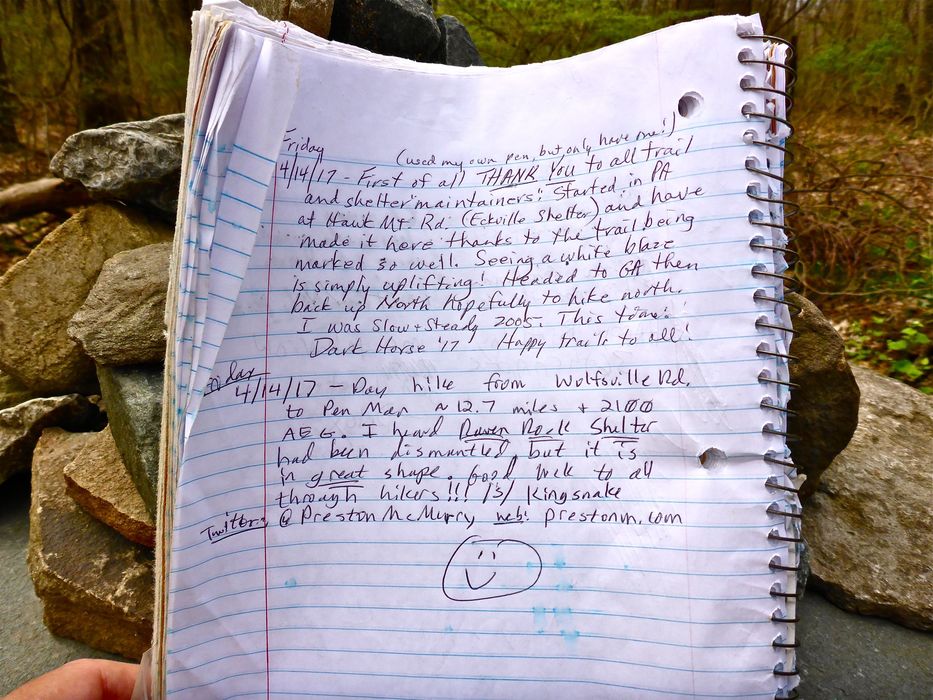 Friday (used my own pen, but only have me!)
4/14/17 - First of all THANK YOU to all trail
and shelter maintainers! Started in PA
at Hawk Mt. Rd. (Eckville Shelter) and have
made it here thanks to the trail being
marked so well. Seeing a white blaze
is simply uplifting! Headed to GA then
back up North hopefully to hike north.
I was Slow + Steady 2005. This time:
Dark Horse '17 Happy trails to all!
Friday
4/14/17 - Day hike from Wolfsville Rd.
to Pen Mar ~ 12.7 miles + 2100
AEG. I heard Raven Rock Shelter
had been dismantled, but it is
in great shape. Good luck to all
through hikers!!! /s/ Kingsnake
Twitter: @PrestonMcMurry web: prestonm.com